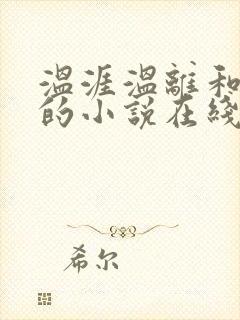 温涯温離和
的小说在綫
希尔